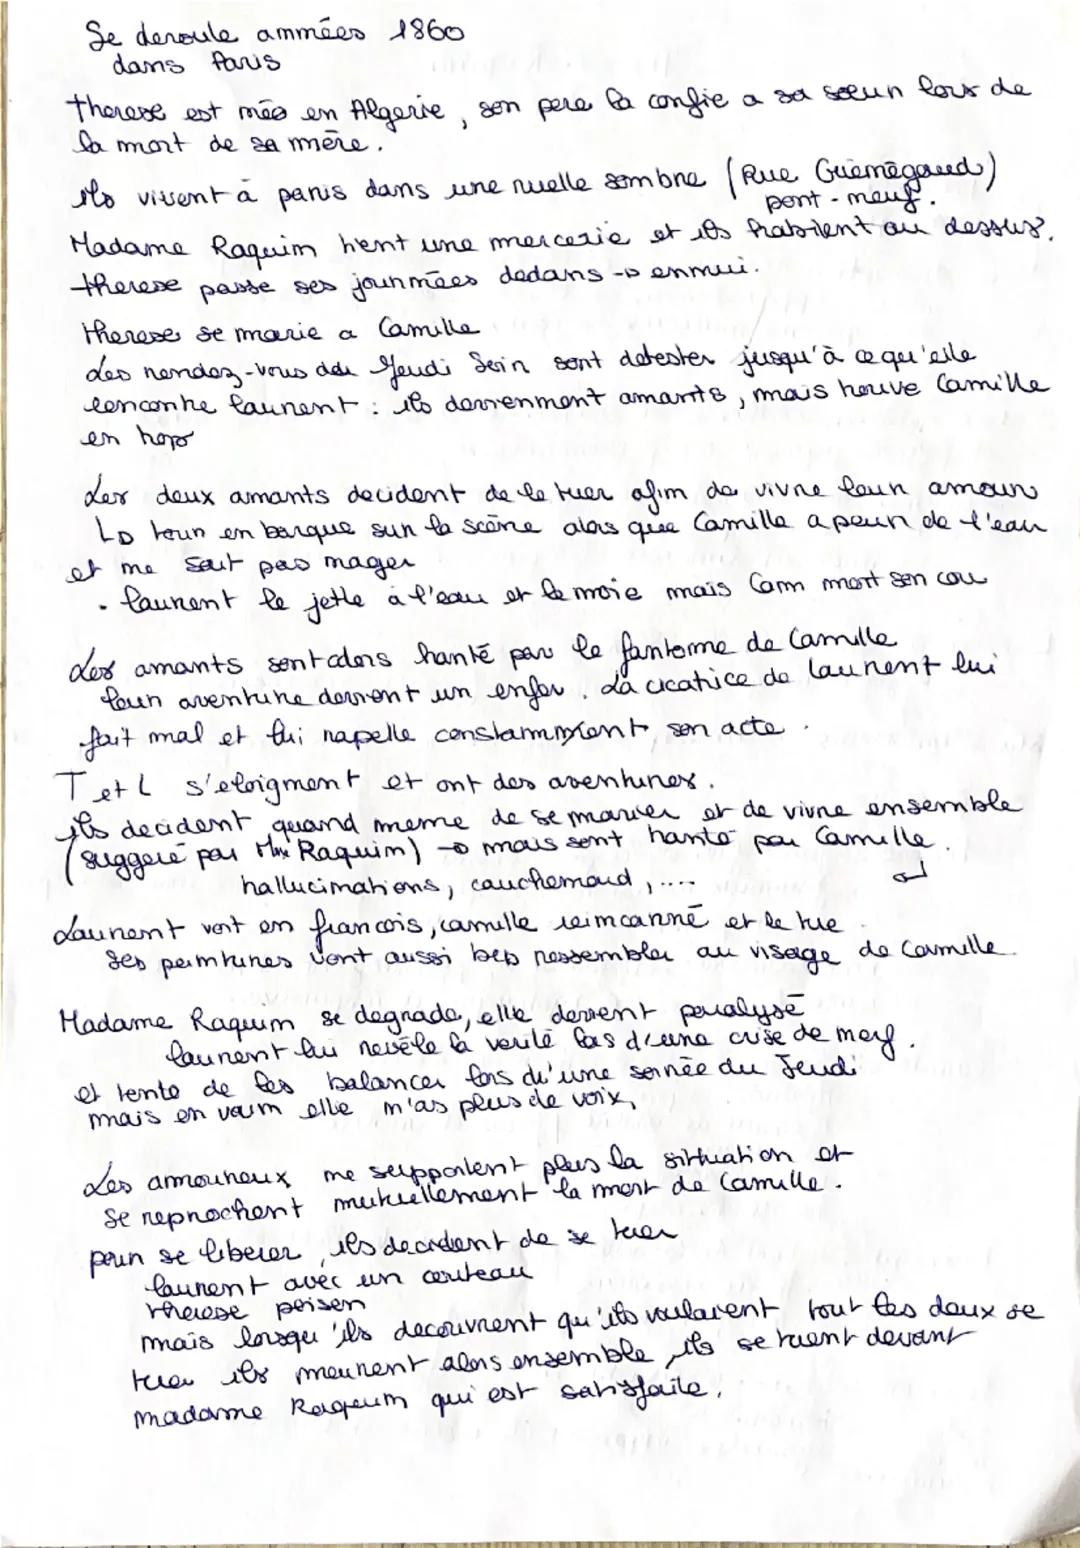 Se deroule années 1860
dans Paris
therese est née en Algerie, son pere la confie a sa soeur lors de
la mort de sa mère.
Ils vivent à paris dans une ruelle sombre (Rue Guénégaud)
pont-neuf.
Madame Raquin tient une mercerie et ils habitent au dessus.
therese passe ses journées dedans → ennui.
therese se marie a Camille
Les rendez-vous du Jeudi Soir sont detester jusqu'à ce qu'elle
rencontre laurent : ils deviennent amants, mais trouve Camille
en trop
Les deux amants decident de le tuer afin de vivre leur amour
↳ tour en barque sur la scène alors que Camille a peur de l'eau
et ne sait pas nager
• laurent le jette à l'eau et le noie mais Cam mort son cou
Les amants sont alors hanté par le fantome de Camille
leur aventure devient un enfer. La cicatrice de laurent lui
fait mal et lui rapelle constamment son acte.
T et L s'eloignent et ont des aventures.
ils decident quand meme de se marier et de vivre ensemble
(suggeré par Mme Raquin) → mais sont hanté par Camille.
hallucinations, cauchemard, ....
Laurent voit en francois, camille reincarné et le tue.
Ses peintures vont aussi ressembler au visage de Camille.
Madame Raquin se degrade, elle devient paralysé
laurent lui revèle la verité lors d'une crise de nerf.
et tente de les balancer lors d'une soirée du Jeudi
mais en vain elle n'as plus de voix,
Les amoureux ne supportent plus la situation et
se reprochent mutuellement la mort de Camille.
pour se liberer, ils decident de se tuer
laurent avec un couteau
therese poison
mais lorsqu'ils decouvrent qu'ils voulaient tout les deux se
tuer ils meurent alors ensemble, ils se tuent devant
madame Raquin qui est satisfaite.